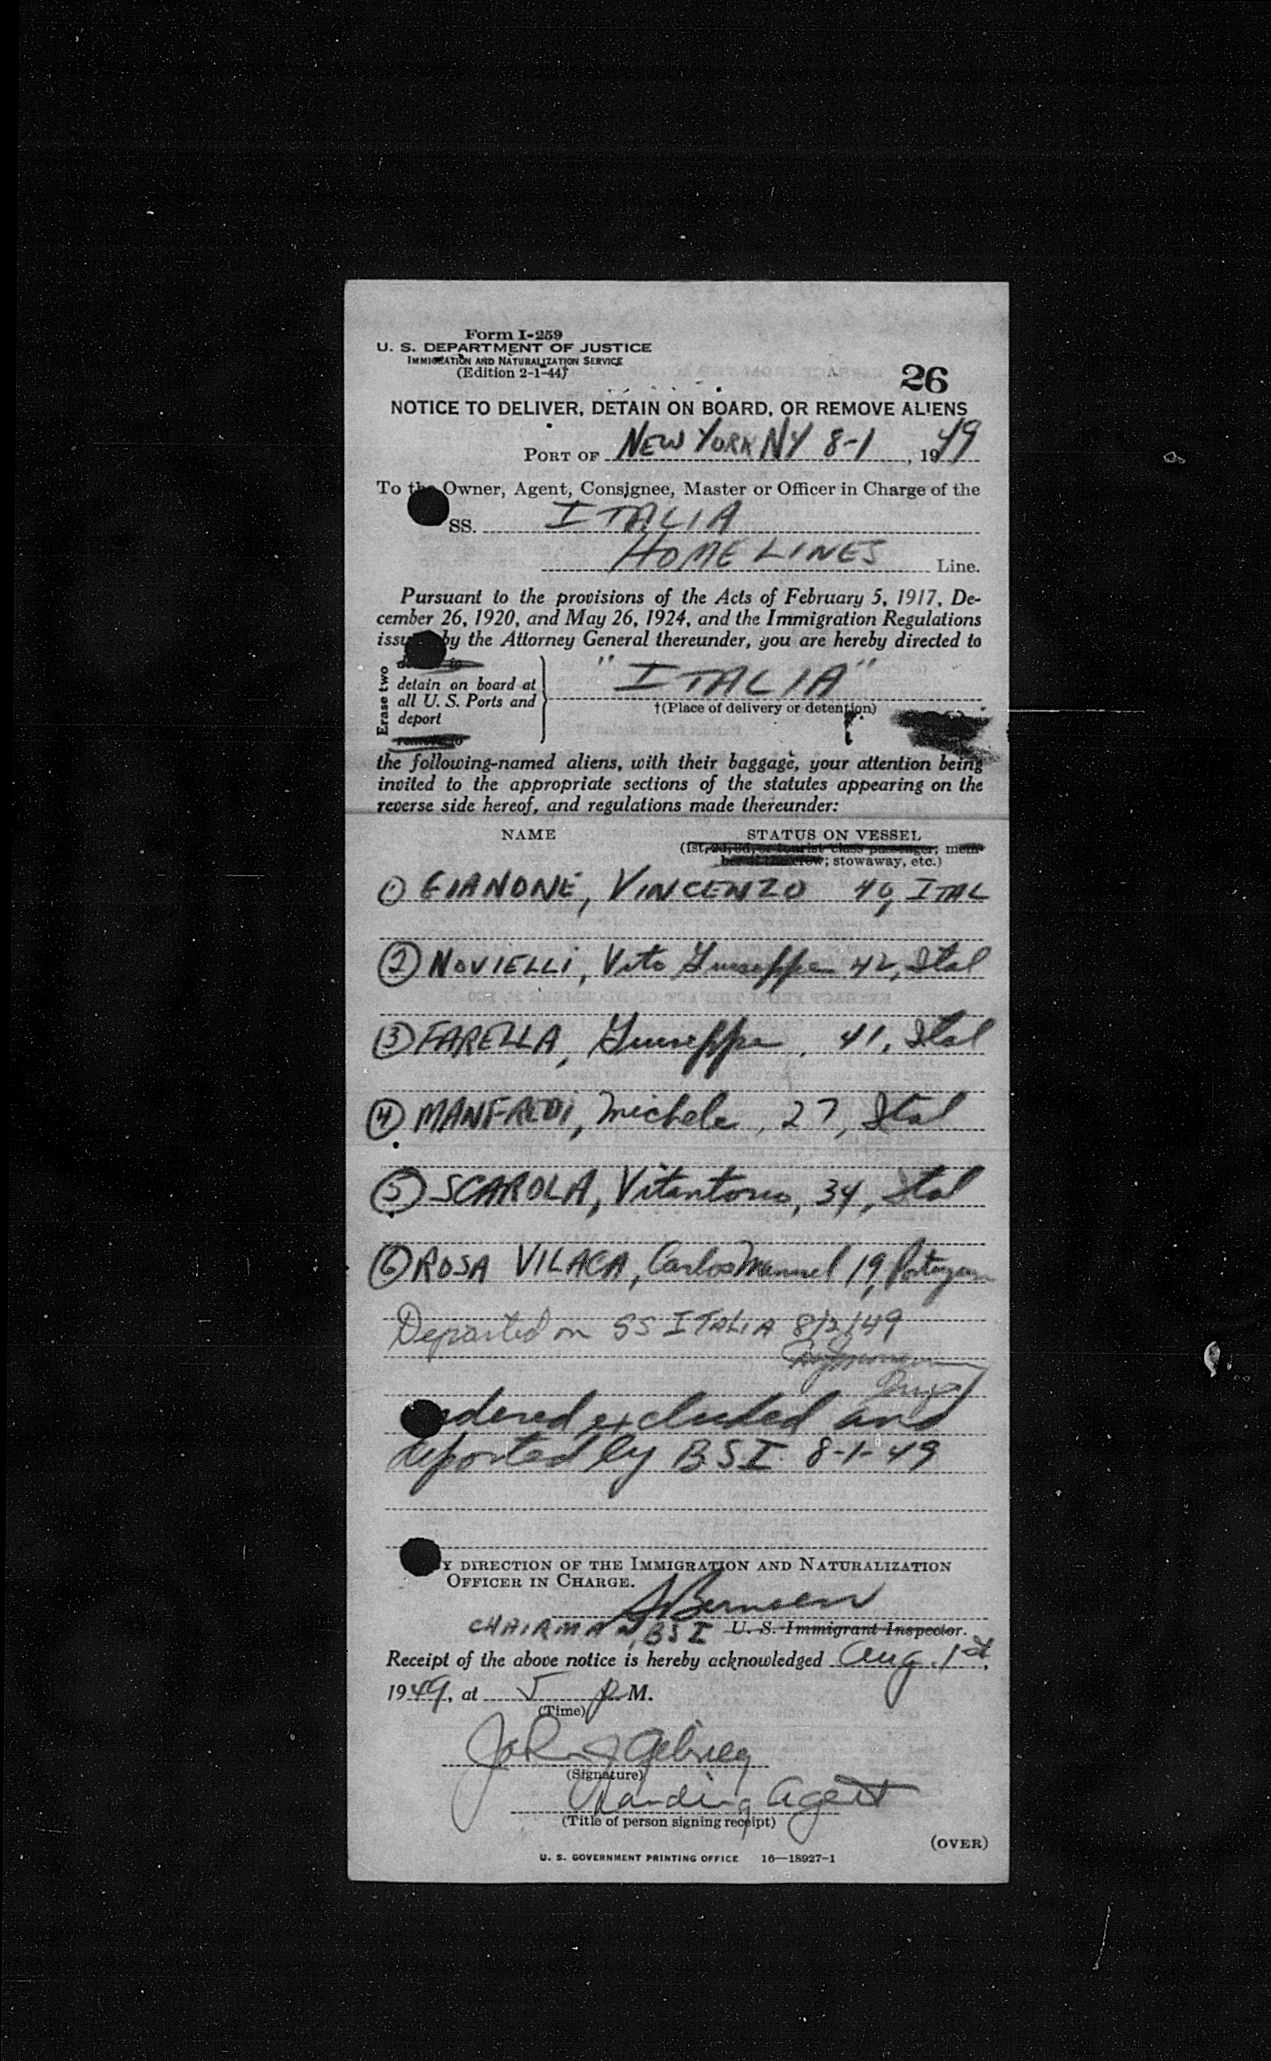 Form I-259
U. S. DEPARTMENT OF JUSTICE
IMMIGRATION AND NATURALIZATION SERVICE
(Edition 2-1-44)
26
NOTICE TO DELIVER, DETAIN ON BOARD, OR REMOVE ALIENS
PORT OF NEW YORK NY 8-1, 1949
To the Owner, Agent, Consignee, Master or Officer in Charge of the
SS. ITALIA
HOME LINES Line.
Pursuant to the provisions of the Acts of February 5, 1917, De-
cember 26, 1920, and May 26, 1924, and the Immigration Regulations
issued by the Attorney General thereunder, you are hereby directed to
Erase two
detain on board at
all U. S. Ports and
deport
remove to
"ITALIA"
†(Place of delivery or detention)
the following-named aliens, with their baggage, your attention being
invited to the appropriate sections of the statutes appearing on the
reverse side hereof, and regulations made thereunder:
NAME STATUS ON VESSEL
(1st, 2d, 3d, or tourist class passenger; mem-
ber of the crew; stowaway, etc.)
① GIANONE, VINCENZO 40, ITAL
② NOVIELLI, Vito Giuseppe 42, Ital
③ FARELLA, Giuseppe, 41, Ital
④ MANFREDI, Michele, 27, Ital
⑤ SCAROLA, Vitantonio, 34, Ital
⑥ ROSA VILACA, Carlos Manuel 19, Portugan
Departed on SS ITALIA 8/2/49
Insp
Ordered excluded and
deported by BSI 8-1-49
BY DIRECTION OF THE IMMIGRATION AND NATURALIZATION
OFFICER IN CHARGE.
CHAIRMAN, BSI U. S. Immigrant Inspector.
Receipt of the above notice is hereby acknowledged Aug. 1st,
1949, at 5 P M.
(Time)
John J
(Signature)
Landing Agent
(Title of person signing receipt)
(OVER)
U. S. GOVERNMENT PRINTING OFFICE 16—18927-1